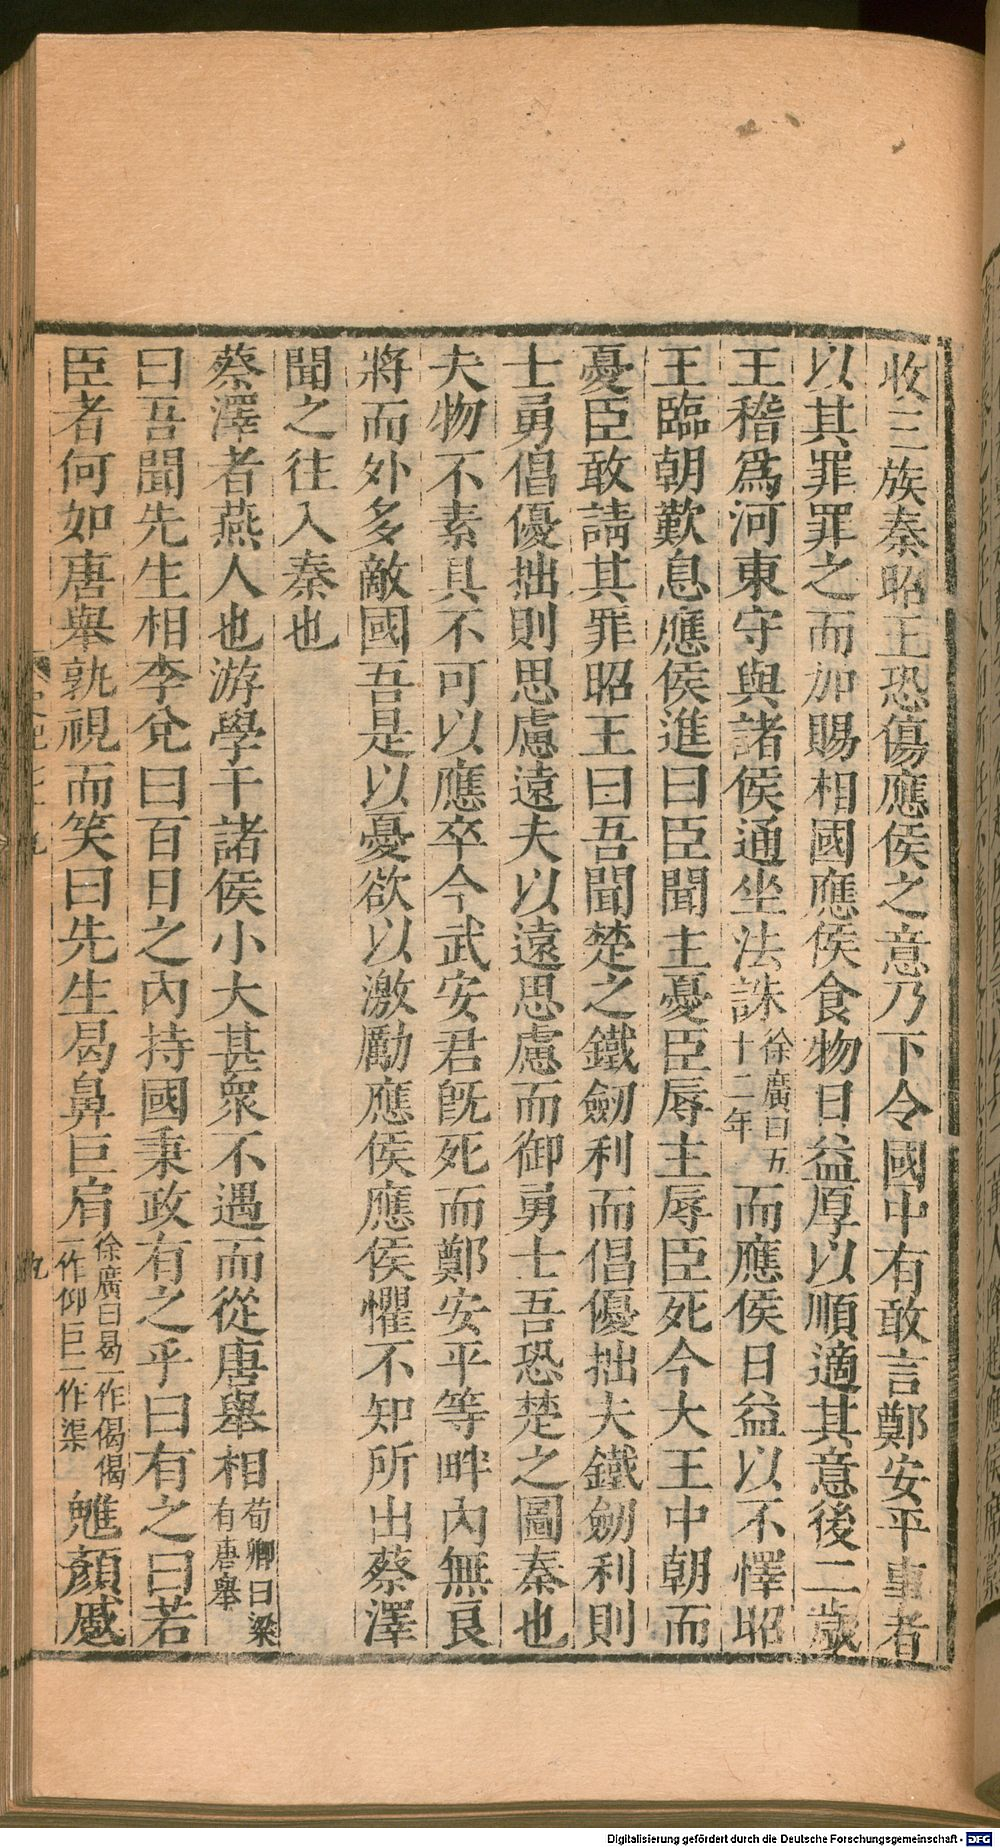 收三族秦昭王恐傷應侯之意乃下令國中有敢言鄭安平事者
以其罪罪之而加賜相國應侯食物日益厚以順適其意後二歲
王稽爲河東守與諸侯通坐法誅徐廣曰五十二年而應侯日益以不懌昭
王臨朝歎息應侯進曰臣聞主憂臣辱主辱臣死今大王中朝而
憂臣敢請其罪昭王曰吾聞楚之鐵劒利而倡優拙夫鐵劒利則
士勇倡優拙則思慮遠夫以遠思慮而御勇士吾恐楚之圖秦也
夫物不素具不可以應卒今武安君旣死而鄭安平等畔內無良
將而外多敵國吾是以憂欲以激勵應侯應侯懼不知所出蔡澤
聞之往入秦也
蔡澤者燕人也游學干諸侯小大甚衆不遇而從唐舉相荀卿曰梁有唐舉
曰吾聞先生相李兌曰百日之內持國秉政有之乎曰有之曰若
臣者何如唐舉孰視而笑曰先生曷鼻巨肩徐廣曰曷一作偈偈一作仰巨一作渠魋顏蹙
九
Digitalisierung gefördert durch die Deutsche Forschungsgemeinschaft - DFG